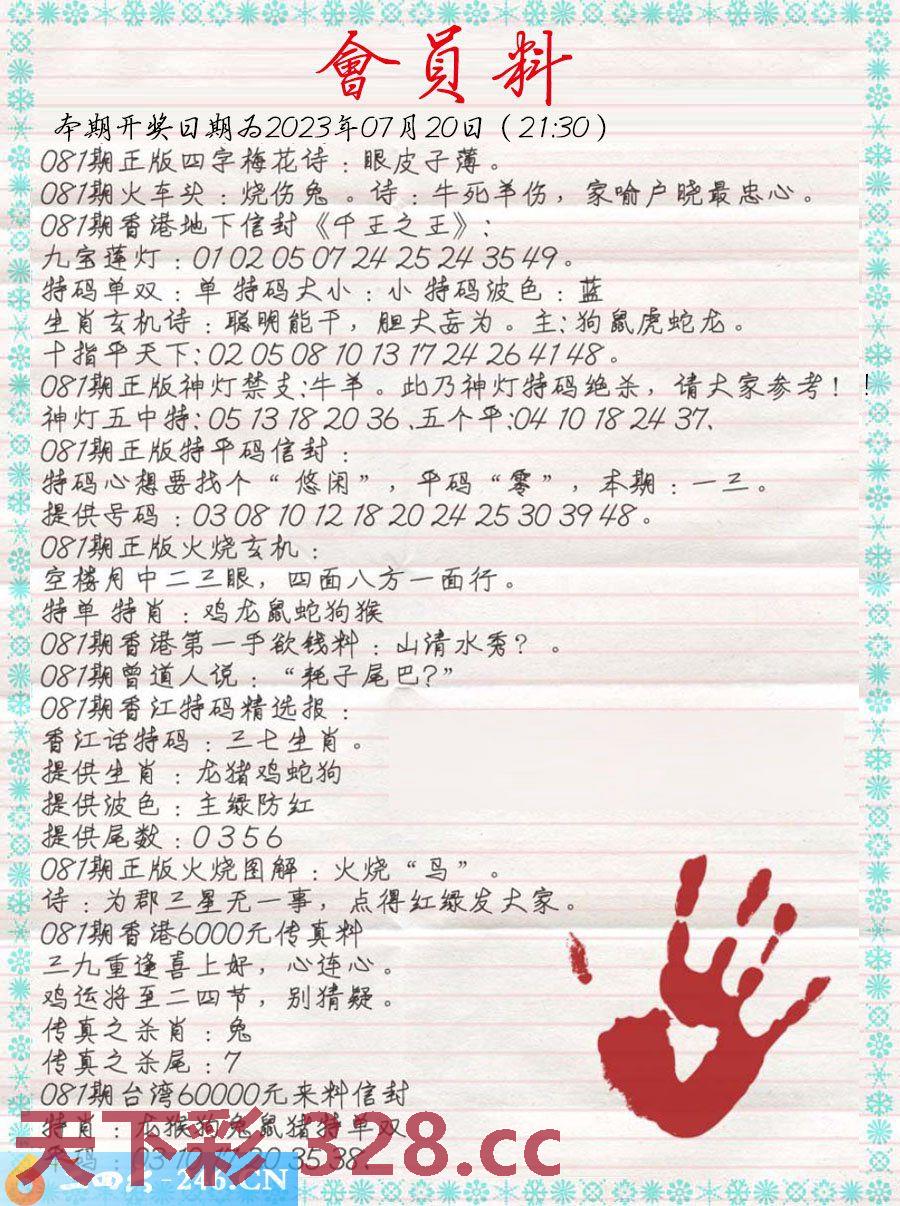 會員料
本期开奖日期为2023年07月20日（21:30）
081期正版四字梅花诗：眼皮子薄。
081期火车头：烧伤兔 。诗：牛死羊伤，家喻户晓最忠心。
081期香港地下信封《千王之王》：
九宝莲灯：01 02 05 07 24 25 24 35 49。
特码单双：单 特码大小：小 特码波色：蓝
生肖玄机诗：聪明能干，胆大妄为。主：狗鼠虎蛇龙。
十指平天下：02 05 08 10 13 17 24 26 41 48。
081期正版神灯禁支:牛羊。此乃神灯特码绝杀，请大家参考！!
神灯五中特：05 13 18 20 36 、五个平:04 10 18 24 37、
081期正版特平码信封：
特码心想要找个“ 悠闲”，平码“零”，本期：一三。
提供号码：03 08 10 12 18 20 24 25 30 39 48。
081期正版火烧玄机：
空楼月中二三眼，四面八方一面行。
特单 特肖：鸡龙鼠蛇狗猴
081期香港第一手欲钱料：山清水秀？。
081期曾道人说：“耗子尾巴？”
081期香江特码精选报：
香江话特码：三七生肖。
提供生肖：龙猪鸡蛇狗
提供波色：主绿防红
提供尾数：0 3 5 6
081期正版火烧图解：火烧“鸟”。
诗：为郡三星无一事，点得红绿发大家。
081期香港6000元传真料
三九重逢喜上好，心连心。
鸡运将至二四节，别猜疑。
传真之杀肖：兔
传真之杀尾：7
081期台湾60000元来料信封
特肖：龙猴狗兔鼠猪特单双
天下彩 328.cc
平码：03 10 17 30 35 38、
二四六-246.CN